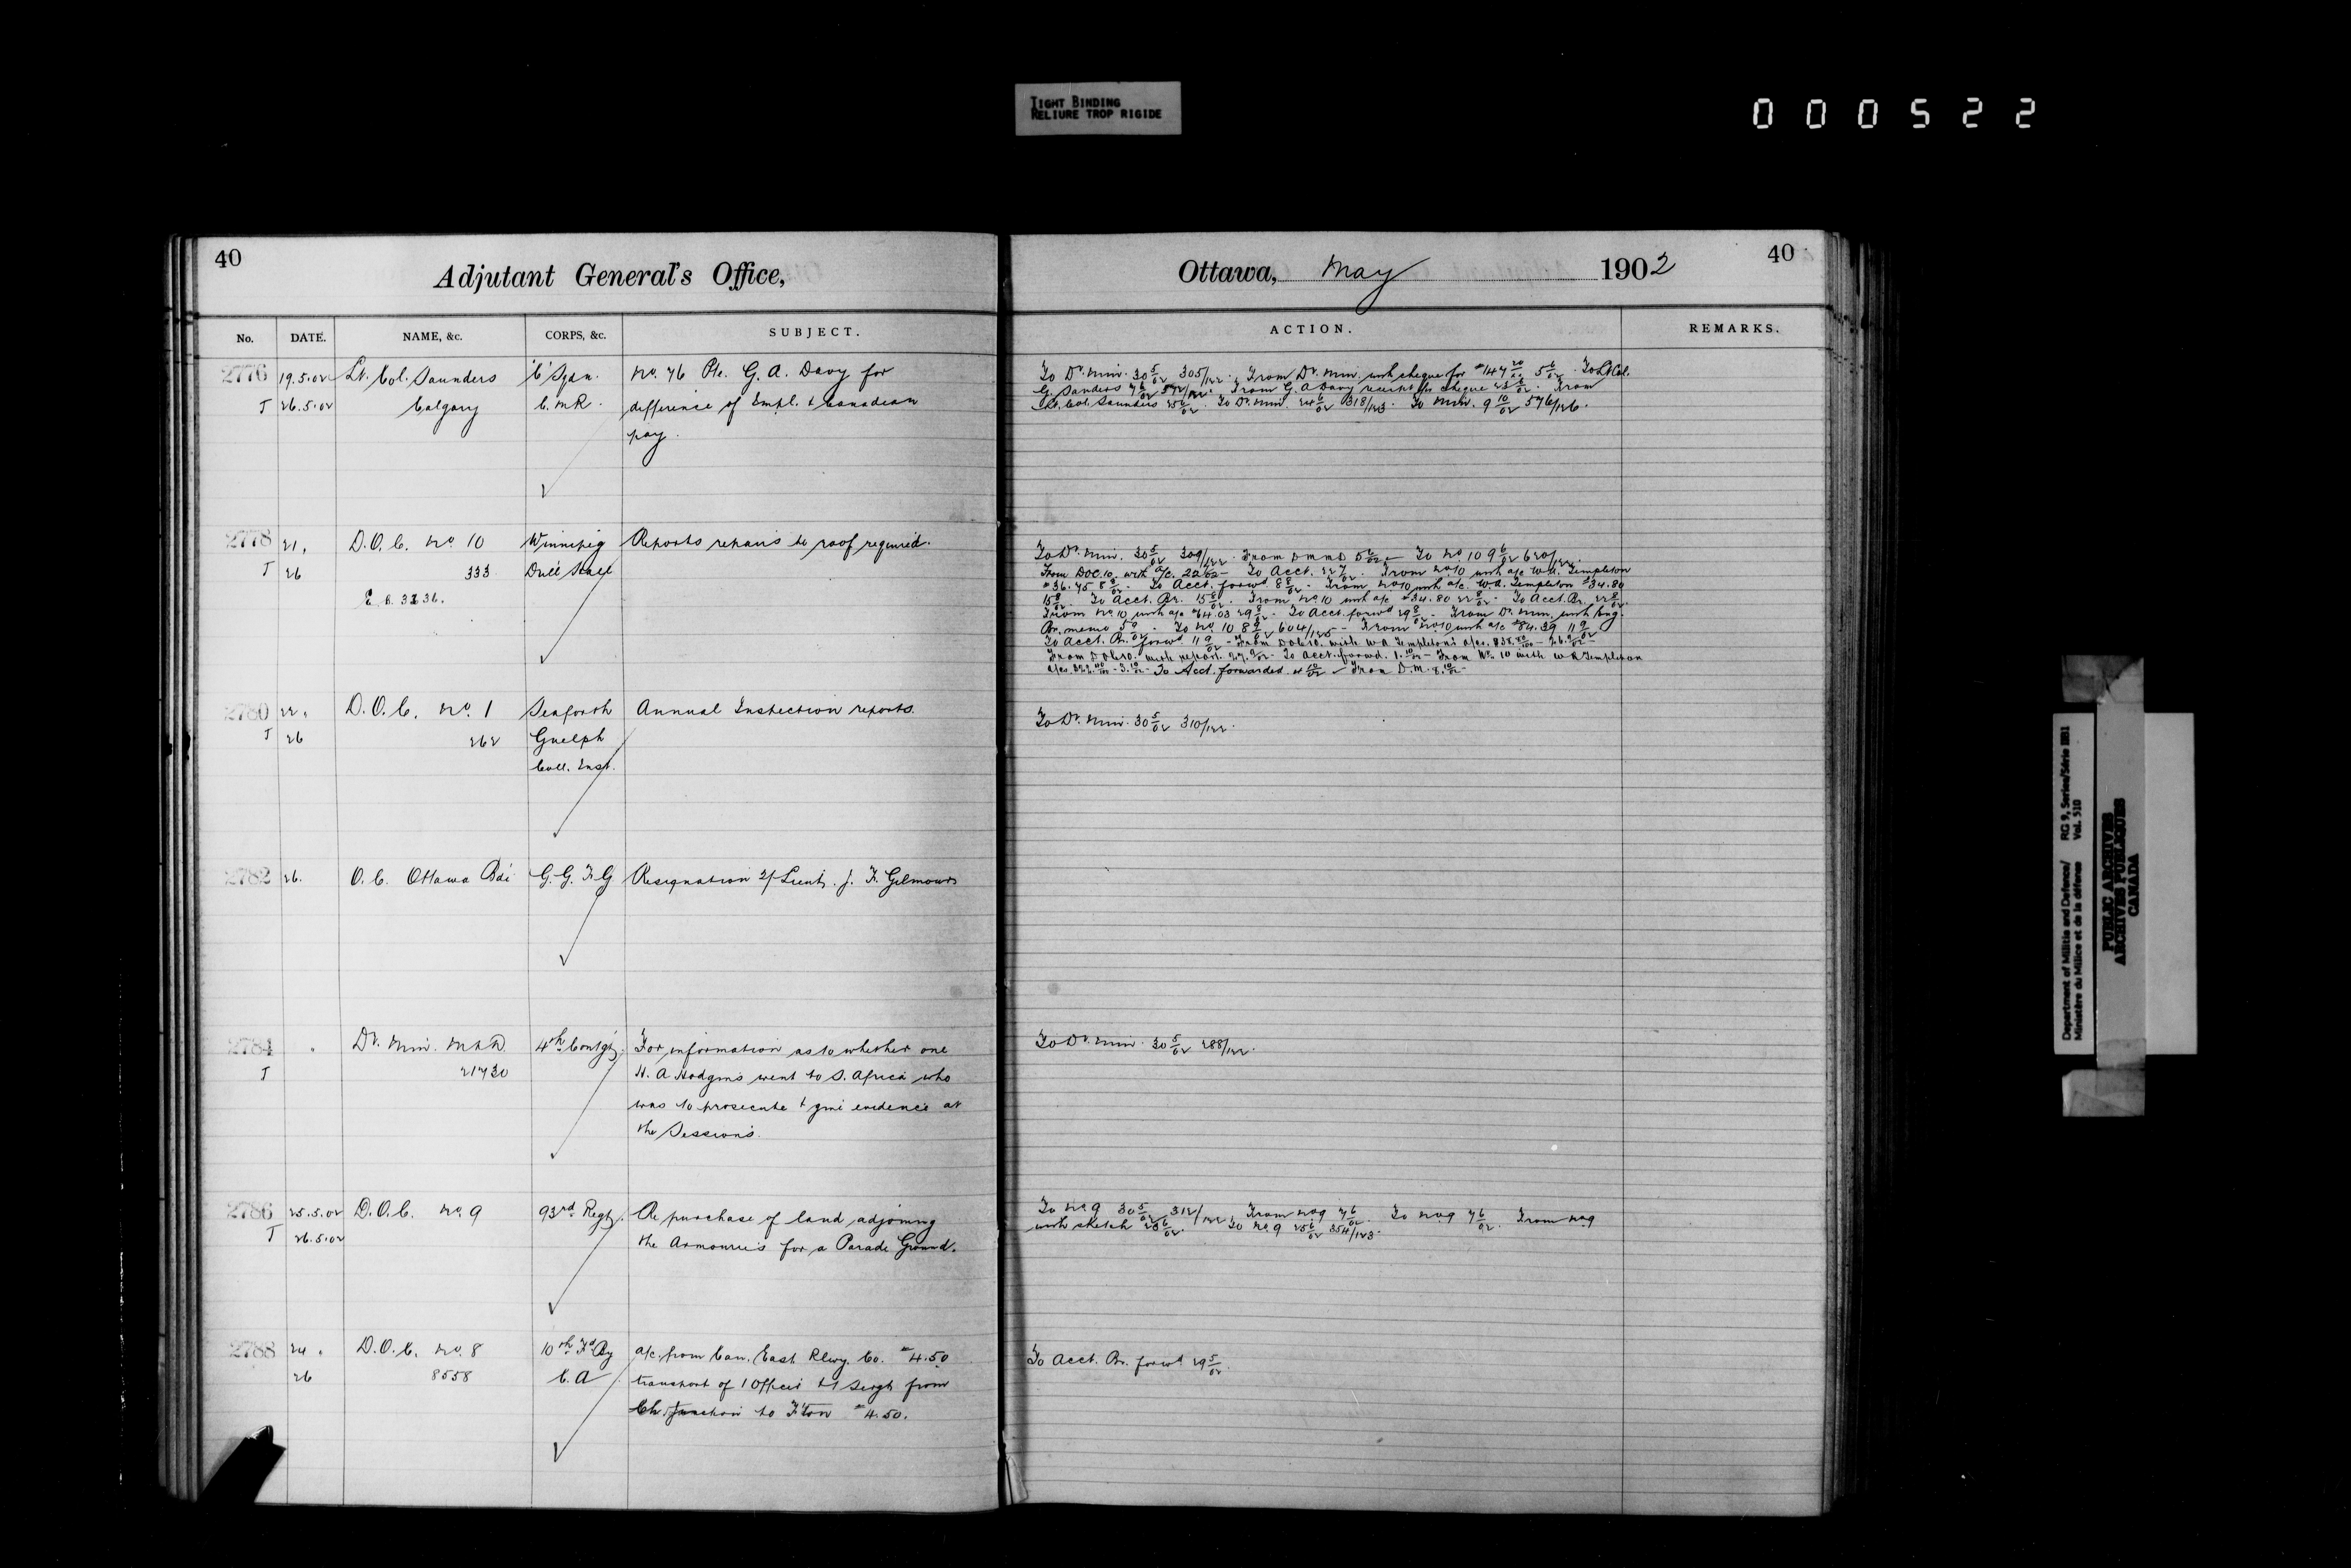 TIGHT BINDING
RELIURE TROP RIGIDE
000522
40
Adjutant General's Office,
No. DATE. NAME, &c. CORPS, &c. SUBJECT.
2776 19.5.02 Lt. Col. Saunders "C" Sqdn. No. 76 Pte. G. A. Davy for
T 26.5.02 Calgary C.M.R. difference of Impl. & Canadian
pay.
2778 21. D.O.C. No. 10 Winnipeg Reports repairs to roof required.
T 26 333 Drill Hall
2780 22. D.O.C. No. 1 Seaforth Annual Inspection reports.
T 26 262 Guelph
Coll. Inst.
2782 26. O.C. Ottawa Bde G.G.F.G Resignation 2/Lieut. J. F. Gilmour
2784 " Dy. Min. M&D. 4th Contgt. For information as to whether one
T 21730 H. A. Hodgins went to S. Africa who
was to prosecute & give evidence at
the Sessions.
2786 25.5.02 D.O.C. No. 9 93rd Regt. Re purchase of land adjoining
T 26.5.02 the Armouries for a Parade Ground.
2788 24. D.O.C. No. 8 10th Fd By a/c. from Can. East Rlwy. Co. $4.50
26 8558 C.A transport of 1 Officer & 1 Sergt from
Ch. Junction to F'ton $4.50.
Ottawa, May 1902
40
ACTION. REMARKS.
To Dy. Min. 30 5/02 305/122. From Dy. Min. with cheque for $147 20/00 5 6/02. To Lt Col.
G. Sanders 7 6/02 572/122. From G. A Davy receipt for cheque 23 6/02. From
Lt. Col. Saunders 25 6/02. To Dy. Min. 24 6/02 318/123. To Min. 9 10/02 576/126.
To Dy. Min. 30 5/02 309/122. From DMMD 5 6/02 To No 10 9 6/02 620/122.
From DOC.10. with a/c. 22 7/02 To Acct. 22 7/02. From No 10 with a/c W.A. Templeton
$36.75 8 8/02 - To Acct. forwd 8 8/02 - From No 10 with a/c. W.A. Templeton $34.80
15 8/02. To Acct. Br. 15 8/02. From No 10 with a/c $34.80 22 8/02. To Acct. Br. 22 8/02.
From No 10 with a/c $64.03 29 8/02. To Acct. forwd 29 8/02. From Dy. Min. with Eng.
Br. memo 5 9/02. To No. 10 8 9/02 604/125 - From No 10 with a/c $84.39 11 9/02
To Acct. Br. forwd 11 9/02 - From DOC10. with W A Templeton's a/cs. 26.9/02
From DOC10. with report. 27.9/02 To Acct. forwd. 1.10/02 - From No. 10 with W A Templeton
3.10/02 - To Acct. forwarded 4 10/02 - From D.M. 8.10/02
To Dy. Min. 30 5/02 310/122.
To Dy. Min. 30 5/02 288/122.
To No 9 30 5/02 312/122. From No 9 7 6/02. To No 9 7 6/02. From No 9
with sketch 23 6/02. To No 9 25 6/02 354/123.
To Acct. Br. forwd 29 5/02.
Department of Militia and Defence/ RG 9, Series/Série IIB1
Ministère du Milice et de la défense Vol. 510
PUBLIC ARCHIVES
ARCHIVES PUBLIQUES
CANADA